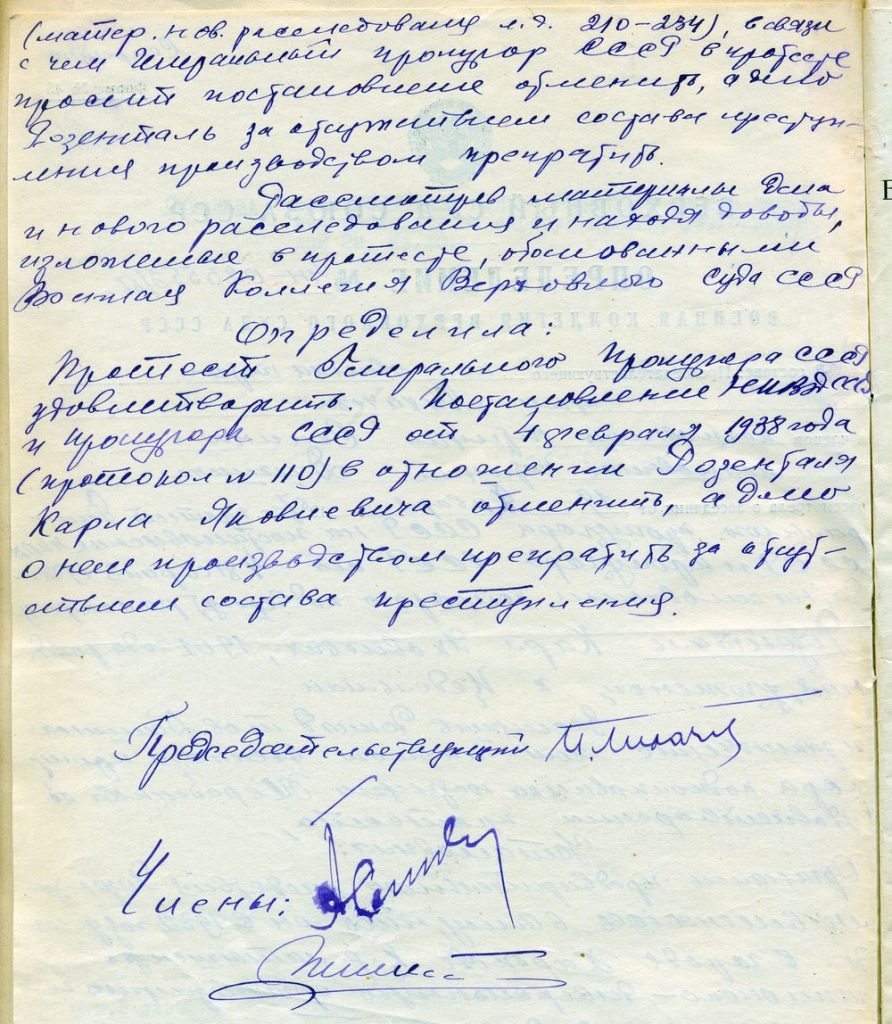 (матер. нов. расследования л.д. 210-234), в связи
с чем Генеральный прокурор СССР в протесте
просит постановление отменить, а дело
Розенталь за отсутствием состава преступ-
ления производством прекратить.
Рассмотрев материалы дела
и нового расследования и находя доводы,
изложенные в протесте, обоснованными
Военная Коллегия Верховного Суда СССР
Определила:
Протест Генерального Прокурора СССР
удовлетворить. Постановление НКВД СССР
и прокурора СССР от 4 февраля 1938 года
(протокол № 110) в отношении Розенталя
Карла Яковлевича отменить, а дело
о нем производством прекратить за отсут-
ствием состава преступления.
Председательствующий
Члены: